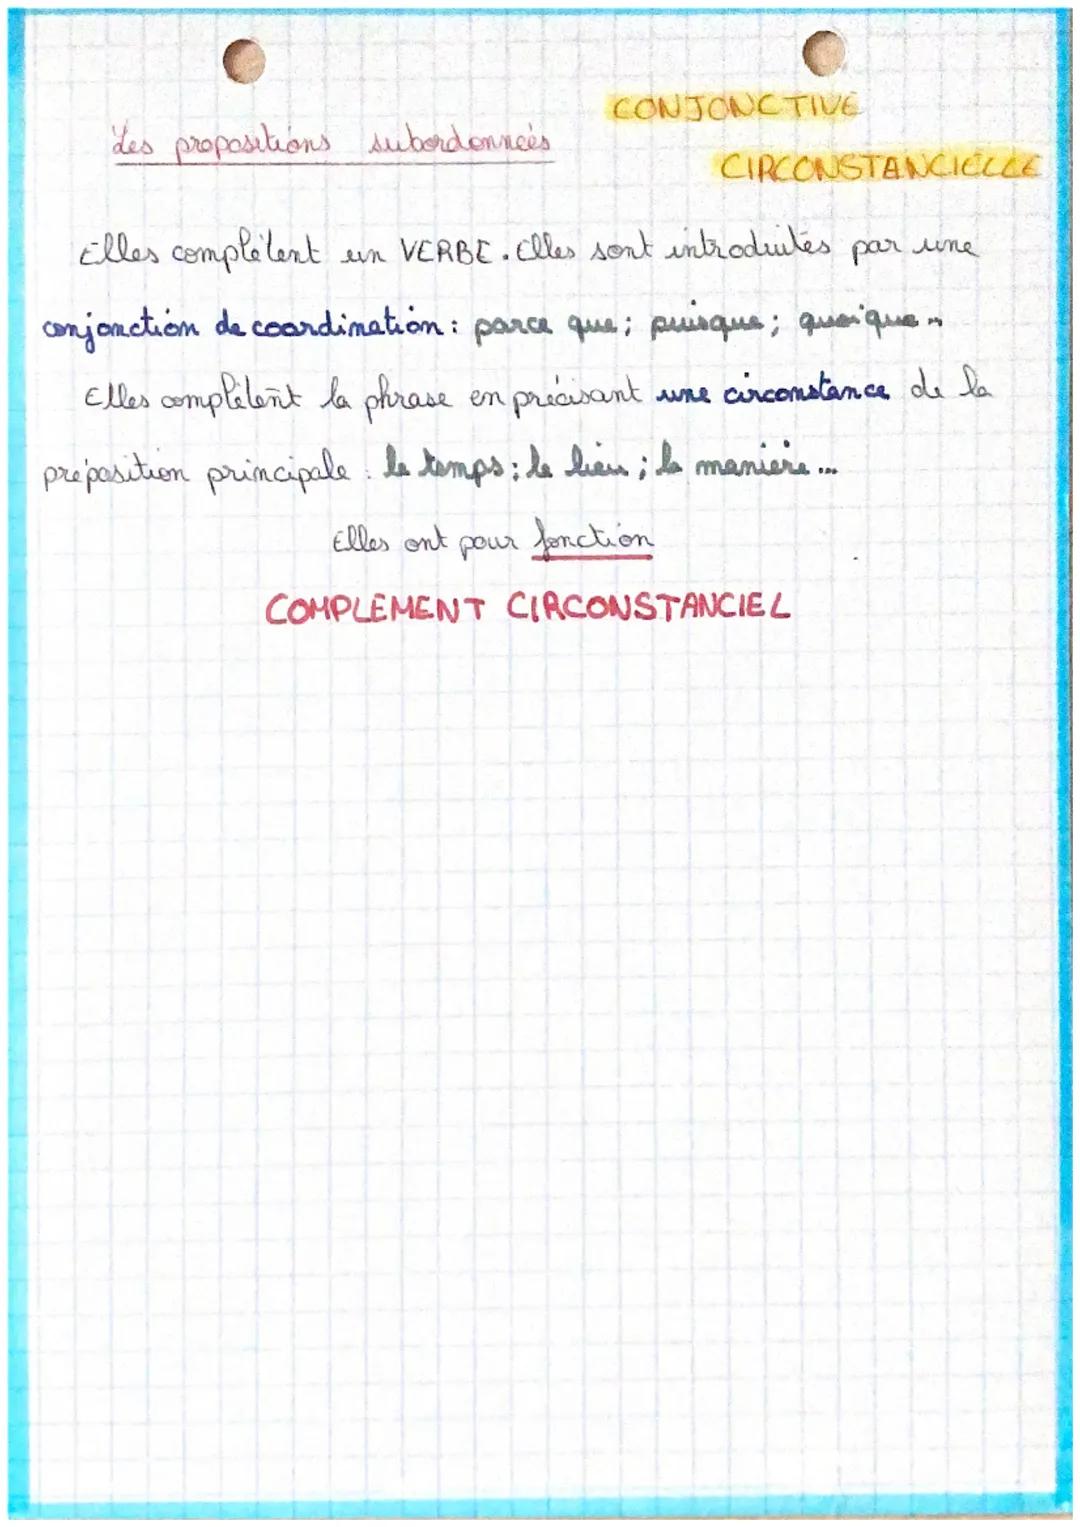 CONJONCTIVE
Les propositions subordonnées
CIRCONSTANCIELLE
Elles complètent un VERBE. Elles sont introduites par une
conjonction de coordination : parce que ; puisque ; quoique...
Elles complètent la phrase en précisant une circonstance de la
préposition principale : le temps ; le lieu ; la manière...
Elles ont pour fonction
COMPLEMENT CIRCONSTANCIEL